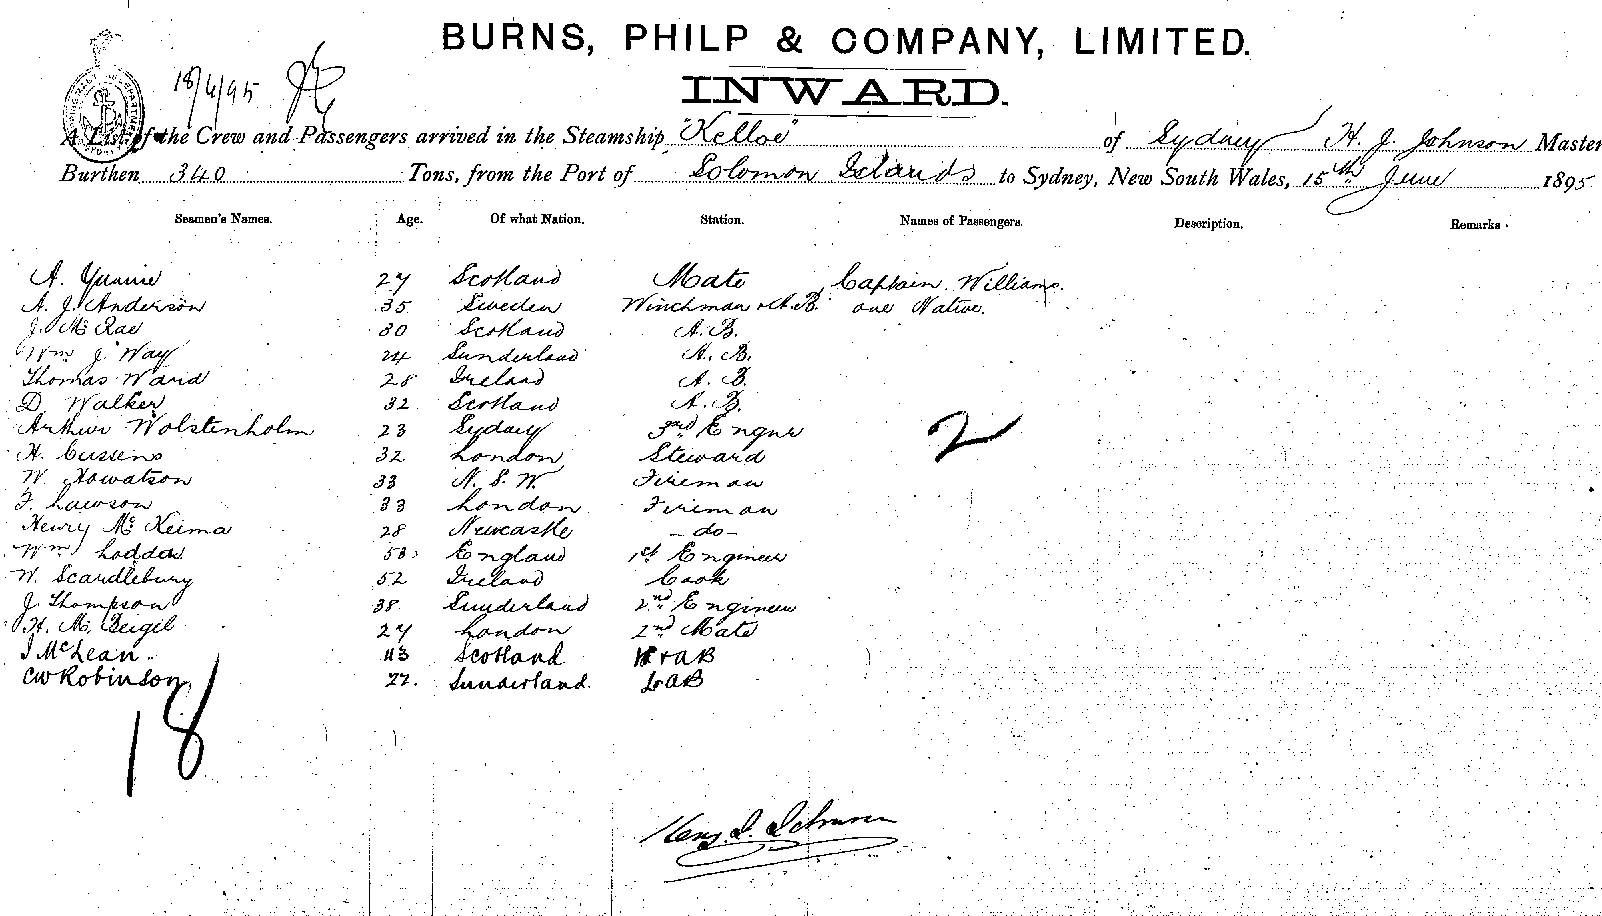 BURNS, PHILP & COMPANY, LIMITED.
INWARD.
18/6/95
A List of the Crew and Passengers arrived in the Steamship "Kelloe" of Sydney H. J. Johnson Master
Burthen 340 Tons, from the Port of Solomon Islands to Sydney, New South Wales, 15th June 1895
Seamen's Names. Age. Of what Nation. Station. Names of Passengers. Description. Remarks
A. 27 Scotland Mate Captain Williams.
A. J. Anderson 35 Sweden Winchman & A.B. one Native.
J. McRae 30 Scotland A.B.
Wm J. Way 24 Sunderland A.B.
Thomas Ward 28 Ireland A.B.
D Walker 32 Scotland A.B.
Arthur Wolstenholm 23 Sydney 3rd Engnr 2
H. Cussens 32 London Steward
W. Howatson 33 N.S.W. Fireman
F. Lawson 33 London Fireman
Henry McKeima 28 Newcastle - do -
Wm Loddas England 1st Engineer
W. Scardlebury 52 Ireland Cook
J. Thompson 38 Sunderland 2nd Engineer
H. M. 27 London 2nd Mate
J McLean 43 Scotland AB
CW Robinson 22. Sunderland. AB
18